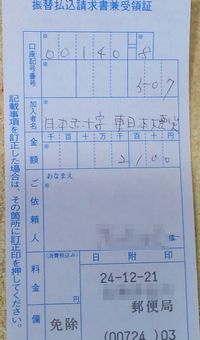 振替払込請求書兼受領証
口座記号番号
00140 8
507
加入者名
日本赤十字 東日本大震災
金額
千百十万千百十円
2100
ご依頼人
おなまえ
様
料金
(消費税込み)
円
備
日附印
24-12-21
郵便局
免除
(00724)03
記載事項を訂正した場合は、その箇所に訂正印を押してください。